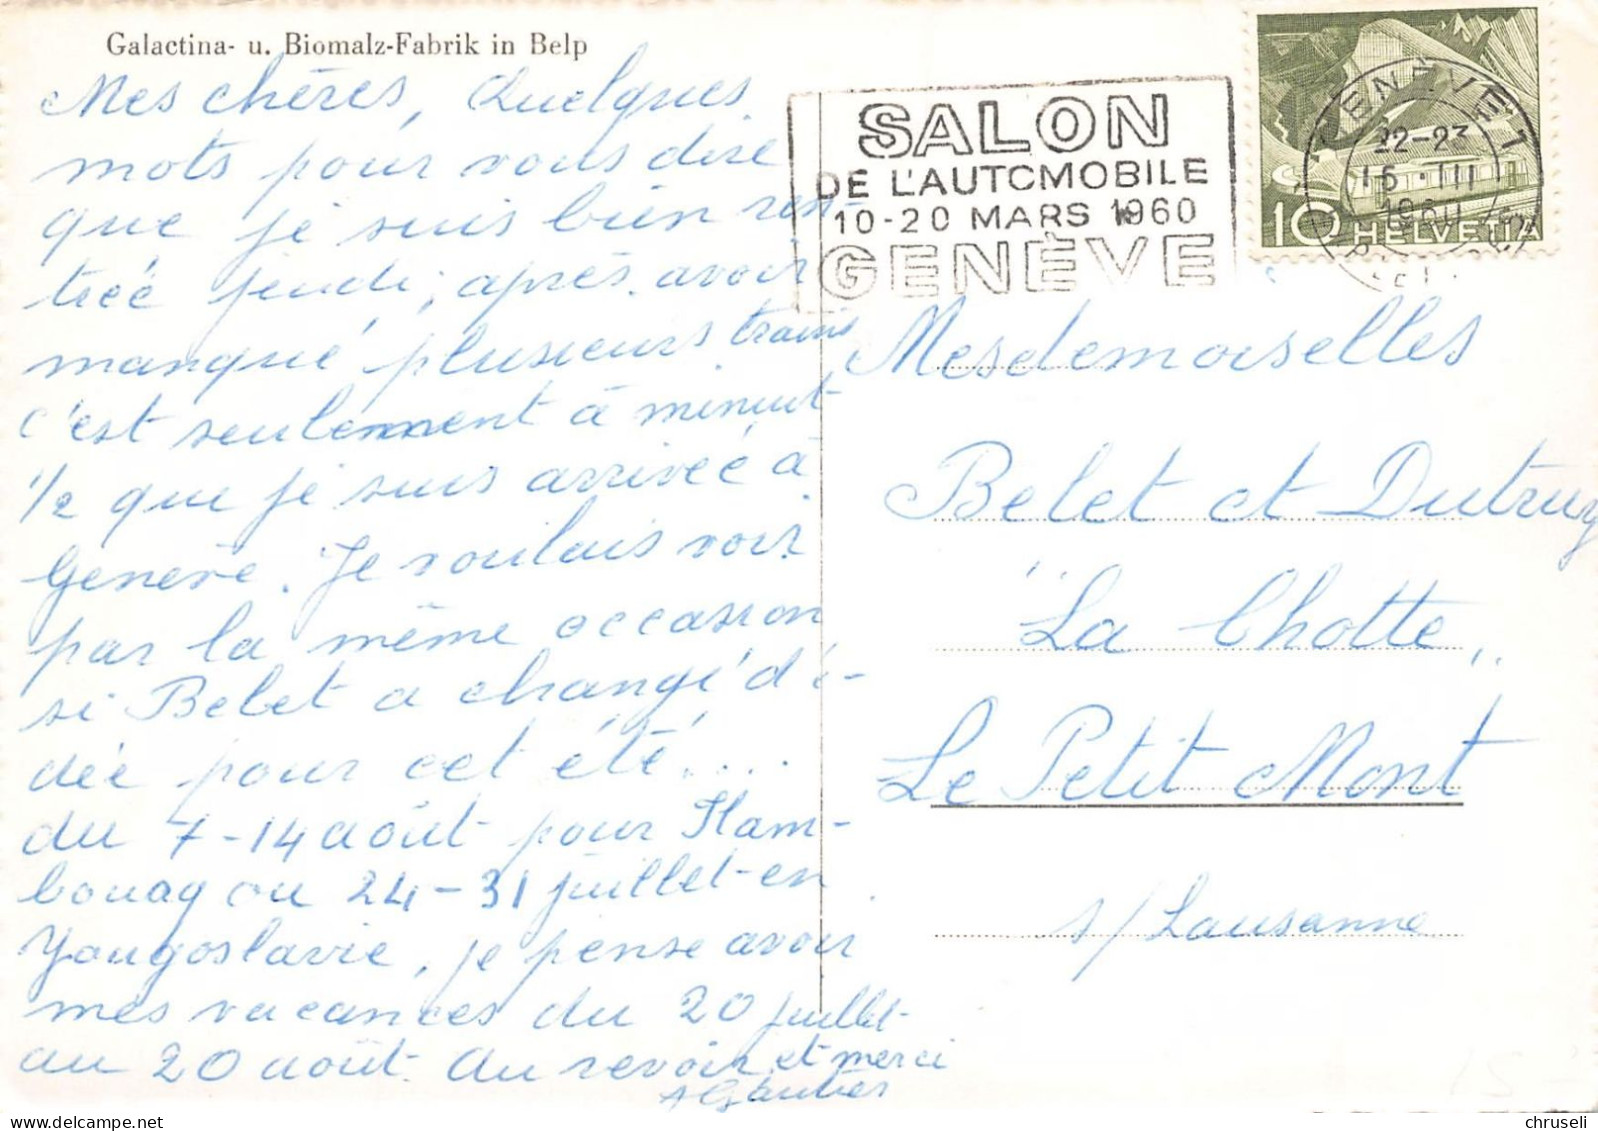 Galactina- u. Biomalz-Fabrik in Belp
Mes chères, Quelques
mots pour vous dire
que je suis bien ren-
trée jeudi, après avoir
manqué plusieurs trains
c'est seulement à minuit
1/2 que je suis arrivée à
Genève. Je voulais voir
par la même occasion
si Belet a changé d'i-
dée pour cet été....
du 7-14 août pour Ham-
bourg ou 24-31 juillet en
Yougoslavie, je pense avoir
mes vacances du 20 juillet
au 20 août. Au revoir et merci
AGautier
SALON
DE L'AUTOMOBILE
10-20 MARS 1960
GENÈVE
GENÈVE 1
22-23
15.III
1960
10 HELVETIA
Mesdemoiselles
Belet et Dutruy
"La Chotte"
Le Petit Mont
s/Lausanne
delcampe.net
chruseli